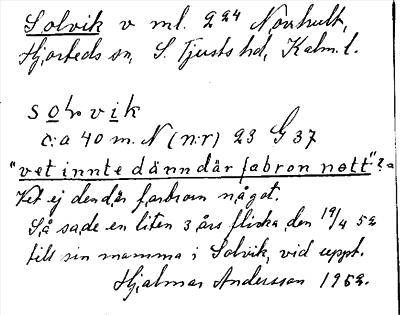 Solvik v ml. 2 24 Norrhult,
Hjorteds sn, S. Tjusts hd, Kalm. l.
solvik
c:a 40 m. N (n:r) 23 G 37
"vet innte dänn där fabron nott"?
Vet ej den där farbrorn något.
Så sade en liten 3 års flicka den 19/4 52
till sin mamma i Solvik, vid uppt.
Hjalmar Andersson 1952.